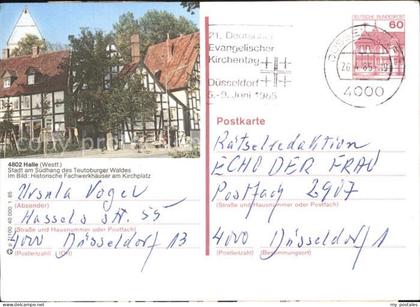 21. Deutscher
Evangelischer
Kirchentag
Düsseldorf
5.-9. Juni 1985
DEUTSCHE BUNDESPOST
60
4000
Postkarte
4802 Halle (Westf.)
Stadt am Südhang des Teutoburger Waldes
Im Bild: Historische Fachwerkhäuser am Kirchplatz
Ursula Vogel
(Absender)
Hassels str. 55
(Straße und Hausnummer oder Postfach)
4000 Düsseldorf 13
(Postleitzahl) (Ort)
Rätselredaktion
ECHO DER FRAU
Postfach 2907
(Straße und Hausnummer oder Postfach)
4000 Düsseldorf 1
(Postleitzahl) (Bestimmungsort)